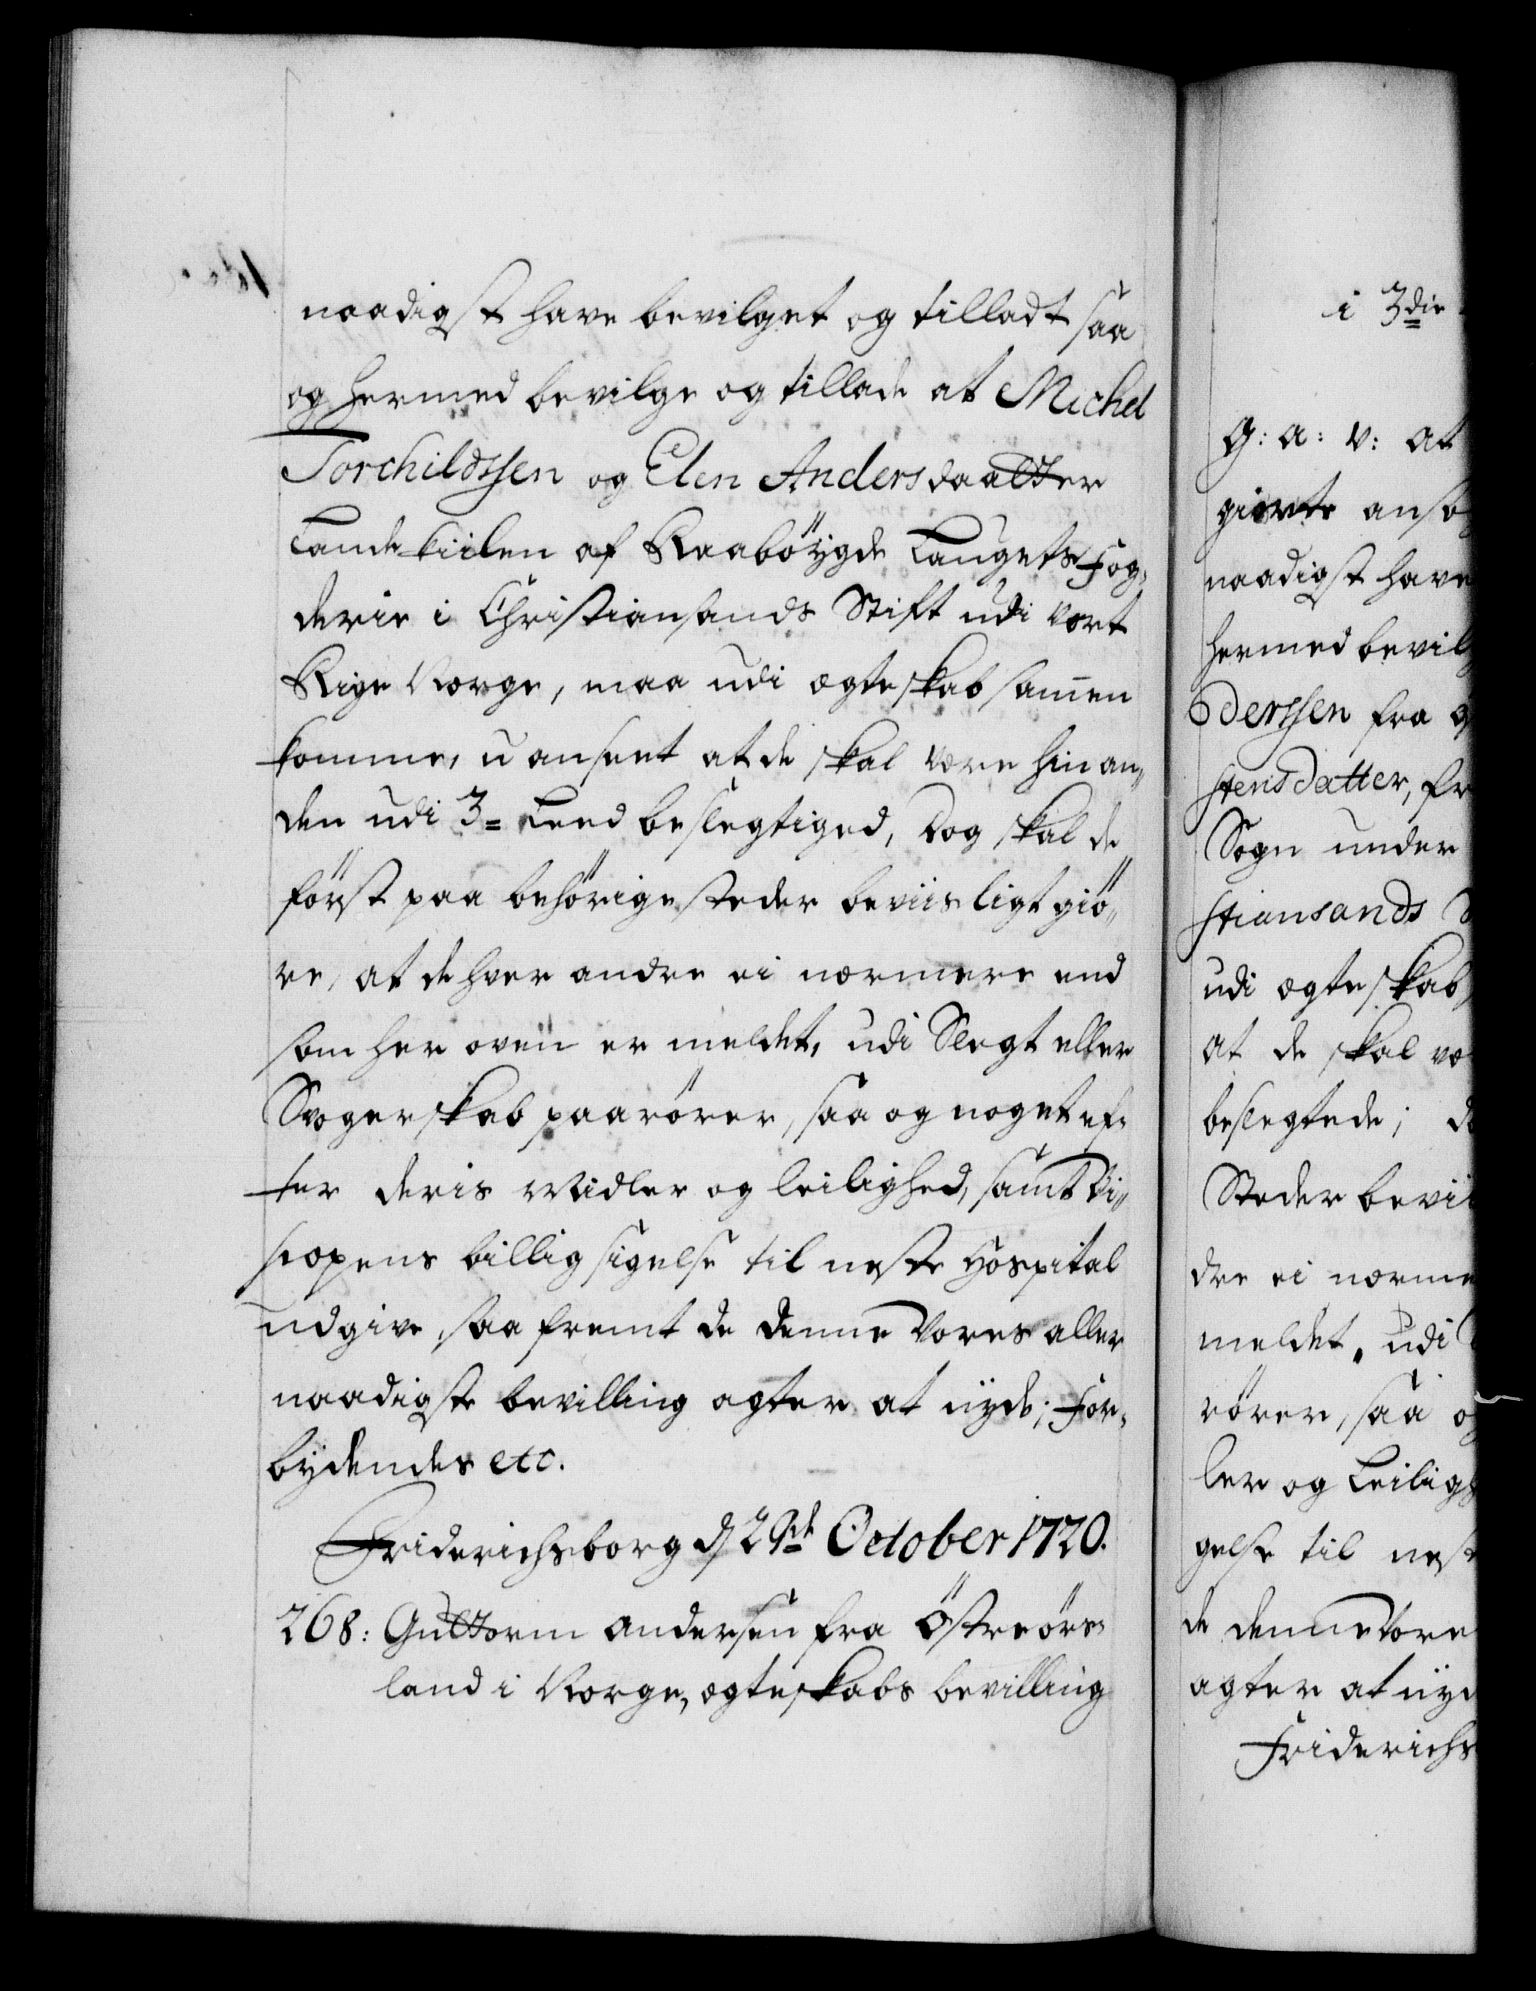 naadigst have bevilget og tilladt saa
og hermed bevilge og tillade at Michel
Torchildssen og Elen Andersdaatter
Landekiilen af Raaböÿgde Laugets Fog-
derie i Christiansands Stift udi vort
Rige Norge, maa udi ægteskab samen
komme, uanseet at de skal være hinan-
den udi 3= Leed beslegtiged, Dog skal de
först paa behörige steder beviisligt giö-
re, at de hver andre ei nærmere end
som her oven er meldet, udi Slegt eller
Svogerskab paarörer, saa og noget ef-
ter deris Midler og leilighed, samt Bi-
scopens billig sigelse til neste Hospital
udgive, saa fremt de denne Vores aller
naadigste bevilling agter at nÿde; For-
bÿdendes etc.
Friderichsborg d 29de October 1720.
268: Guttorm Andersen fra Östreörs-
land i Norge, ægteskabs bevilling
i 3die
G: a: v: at
giorte ansö
naadigst have
hermed bevil
derssen fra
stensdatter, fr
Sogn under
stiansands
udi ægteskab
at de skal væ
beslegtede; d
Steder bevii
dre ei nærme
meldet, udi
rörer, saa o
ler og Leilig
gelse til nest
de denne Vore
agter at nÿd
Friderichs